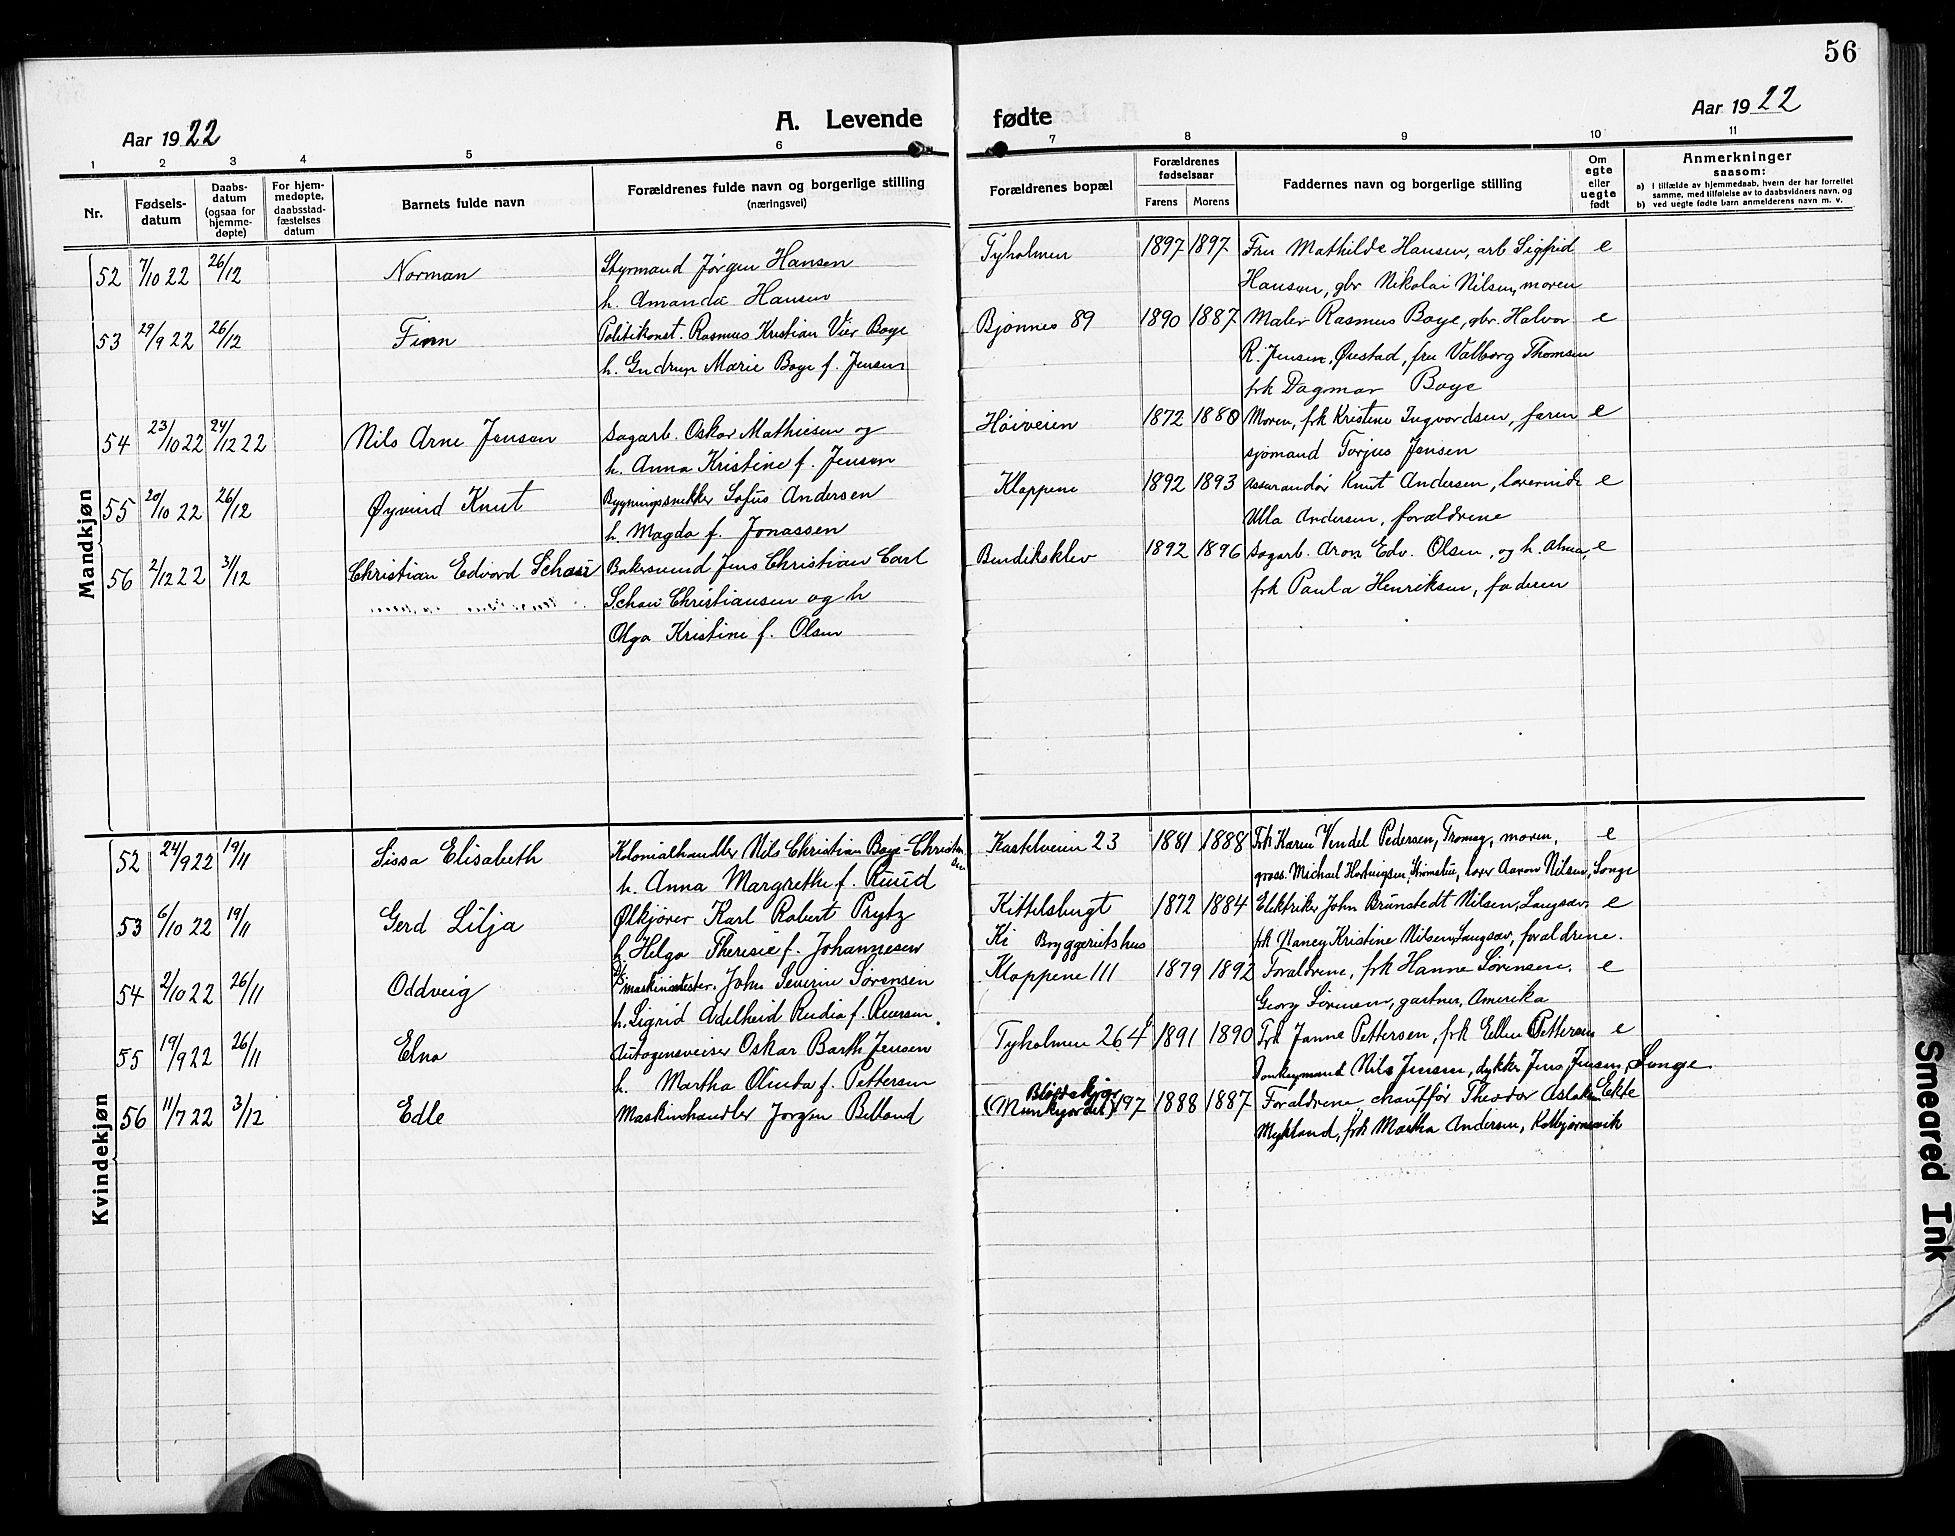 56
Aar 1922
A. Levende fødte
Aar 1922
1 2 3 4 5 6 7 8 9 10 11
Nr.
Fødsels-
datum
Daabs-
datum
(ogsaa for
hjemme-
døpte)
For hjem-
medøpte,
daabsstad-
fæstelses
datum
Barnets fulde navn
Forældrenes fulde navn og borgerlige stilling
(næringsvei)
Forældrenes bopæl
Forældrenes
fødselsaar
Farens Morens
Faddernes navn og borgerlige stilling
Om
egte
eller
uegte
født
Anmerkninger
saasom:
a) i tilfælde av hjemmedaab, hvem der har forrettet
samme, med tilføielse av to daabsvidners navn, og
b) ved uegte fødte barn anmelderens navn m. v.
Mandkjøn
52 7/10 22 26/12 Norman Styrmand Jørgen Hansen Tyholmen 1897 1897 Fru Mathilde Hansen, arb Sigfrid e
h. Amanda Hansen Hansen, gbr Nikolai Nilsen, moren
53 29/9 22 26/12 Finn Politikonst. Rasmus Kristian Vier Boye Bjønnes 89 1890 1887 Maler Rasmus Boye, gbr. Halvor e
h. Gudrun Marie Boye f. Jensen R. Jensen, Ørestad, fru Valborg Thomsen
frk Dagmar Boye
54 23/10 22 24/12 22 Nils Arne Jensen Sagarb. Oskar Mathiesen og Høiveien 1872 1880 Moren, frk Kristene Ingvordsen, faren e
h. Anna Kristine f. Jensen sjømand Torjus Jensen
55 20/10 22 26/12 Øyvind Knut Bygningssnekker Sofus Andersen Kloppene 1892 1893 Assurandør Knut Andersen, lærerinde e
h. Magda f. Jonassen Ulla Andersen, forældrene
56 2/12 22 31/12 Christian Edvard Schau Bakersvend Jens Christian Carl Bendiksklev 1892 1896 Sagarb. Aron Edv. Olsen, og h. Alma, e
Schau Christiansen og h frk Paula Henriksen, faderen
Olga Kristine f. Olsen
Kvindekjøn
52 24/9 22 19/11 Sissa Elisabeth Kolonialhandler Nils Christian Boye-Christen Kastelveien 23 1881 1888 Frk Karen Vendel Pedersen, Tromøy, moren, e
sen
h. Anna Margrethe f. Ruud gross. Michael Hartvigsen, Strømsbu, lærer Aaron Nilsen, Songe
53 6/10 22 19/11 Gerd Lilja Ølkjører Karl Robert Prytz Kittelsbugt 1872 1884 Elektriker John Brunstedt Nilsen, Langsæv, e
h. Helga Theresie f. Johannesen Ki Bryggeriets hus frk Nancy Kristine Nilsen, Langsæv, forældrene.
54 2/10 22 26/11 Oddveig maskinmester John Severin Sørensen Kloppene 111 1879 1892 Forældrene, frk Hanne Sørensen, e
h. Sigrid Adelheid Rudia f. Reiersen. Georg Sørensen, gartner, Amerika
55 19/9 22 26/11 Elna Autogensveiser Oskar Barth Jensen Tyholmen 264 1891 1890 Frk Janne Pettersen, frk Ellen Pettersen e
h. Martha Olinda f. Pettersen Donkeymand Nils Jensen, dykker Jens Jensen, Songe
56 11/7 22 3/12 Edle Maskinhandler Jørgen Belland Blødekjær (Munkejordet) 197 1888 1887 Forældrene chauffør Theodor Aslaksen Ekte
Mykland, frk Martha Andersen, Kolbjørnsvik
Smeared Ink